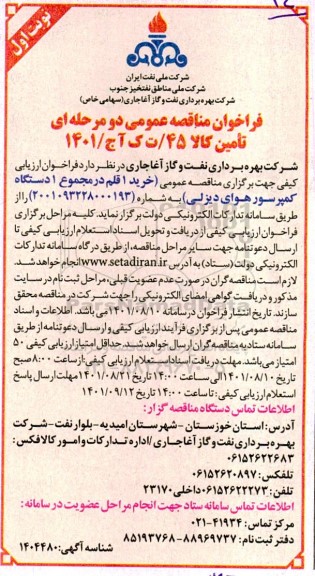 نوبت اول
شرکت ملی نفت ایران
شرکت ملی مناطق نفتخیز جنوب
شرکت بهره برداری نفت و گاز آغاجاری (سهامی خاص)
فراخوان مناقصه عمومی دو مرحله ای
تأمین کالا ۴۵/ت ک آ ج/۱۴۰۱
شرکت بهره برداری نفت و گاز آغاجاری در نظر دارد فراخوان ارزیابی
کیفی جهت برگزاری مناقصه عمومی (خرید ۱ قلم در مجموع ۱ دستگاه
کمپرسور هوای دیزلی) به شماره (۲۰۰۱۰۹۳۲۲۸۰۰۰۱۹۳) را از
طریق سامانه تدارکات الکترونیکی دولت برگزار نماید. کلیه مراحل برگزاری
فراخوان ارزیابی کیفی از دریافت و تحویل اسناد استعلام ارزیابی کیفی تا
ارسال دعوتنامه جهت سایر مراحل مناقصه، از طریق درگاه سامانه تدارکات
الکترونیکی دولت (ستاد) به آدرس www.setadiran.ir انجام خواهد شد.
لازم است مناقصه گران در صورت عدم عضویت قبلی، مراحل ثبت نام در سایت
مذکور و دریافت گواهی امضای الکترونیکی را جهت شرکت در مناقصه محقق
سازند. تاریخ انتشار فراخوان در سامانه ۱۴۰۱/۰۸/۱۰ می باشد. اطلاعات و اسناد
مناقصه عمومی پس از برگزاری فرآیند ارزیابی کیفی و ارسال دعوتنامه از طریق
سامانه ستاد به مناقصه گران ارسال خواهد شد. حداقل امتیاز ارزیابی کیفی ۵۰
امتیاز می باشد. مهلت دریافت اسناد استعلام ارزیابی کیفی: از ساعت ۸:۰۰ صبح
تاریخ ۱۴۰۱/۰۸/۱۰ الی ساعت ۱۴:۰۰ تاریخ ۱۴۰۱/۰۸/۲۱ مهلت ارسال پاسخ
استعلام ارزیابی کیفی: تا ساعت ۱۴:۰۰ تاریخ ۱۴۰۱/۰۹/۱۲
اطلاعات تماس دستگاه مناقصه گزار:
آدرس: استان خوزستان - شهرستان امیدیه - بلوار نفت - شرکت
بهره برداری نفت و گاز آغاجاری/اداره تدارکات و امور کالا فکس:
۰۶۱۵۲۶۲۲۶۸۳
تلفکس: ۰۶۱۵۲۶۲۰۸۹۷
تلفن: ۰۶۱۵۲۶۲۲۲۷۳ داخلی ۲۳۱۷۰
اطلاعات تماس سامانه ستاد جهت انجام مراحل عضویت در سامانه:
مرکز تماس: ۴۱۹۳۴-۰۲۱
دفتر ثبت نام: ۸۸۹۶۹۷۳۷ - ۸۵۱۹۳۷۶۸
شناسه آگهی: ۱۴۰۴۴۸۰